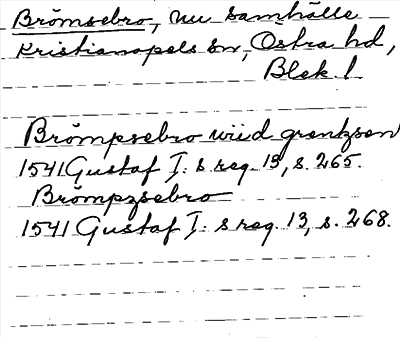 Brömsebro, nu samhälle
Kristianopels sn, Östra hd,
Blek. l.
Brömpsebro wiid grentzsen
1541 Gustaf I:s reg. 13, s. 265.
Brömpzsebro
1541 Gustaf I:s reg. 13, s. 268.